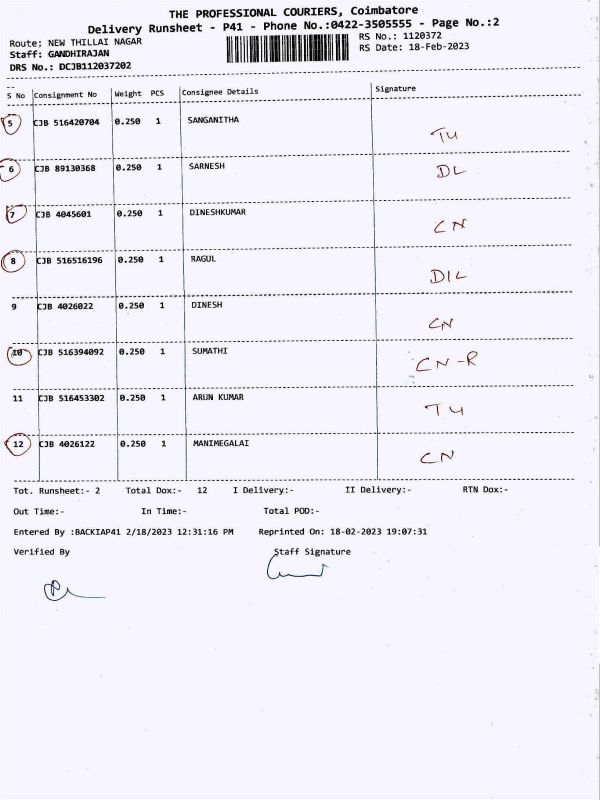 THE PROFESSIONAL COURIERS, Coimbatore
Delivery Runsheet - P41 - Phone No.:0422-3505555 - Page No.:2
Route: NEW THILLAI NAGAR RS No.: 1120372
Staff: GANDHIRAJAN RS Date: 18-Feb-2023
DRS No.: DCJB112037202
S No Consignment No Weight PCS Consignee Details Signature
5 CJB 516420704 0.250 1 SANGANITHA TU
6 CJB 89130368 0.250 1 SARNESH DL
7 CJB 4045601 0.250 1 DINESHKUMAR CN
8 CJB 516516196 0.250 1 RAGUL DIL
9 CJB 4026022 0.250 1 DINESH CN
10 CJB 516394092 0.250 1 SUMATHI CN-R
11 CJB 516453302 0.250 1 ARUN KUMAR TU
12 CJB 4026122 0.250 1 MANIMEGALAI CN
Tot. Runsheet:- 2 Total Dox:- 12 I Delivery:- II Delivery:- RTN Dox:-
Out Time:- In Time:- Total POD:-
Entered By :BACKIAP41 2/18/2023 12:31:16 PM Reprinted On: 18-02-2023 19:07:31
Verified By Staff Signature